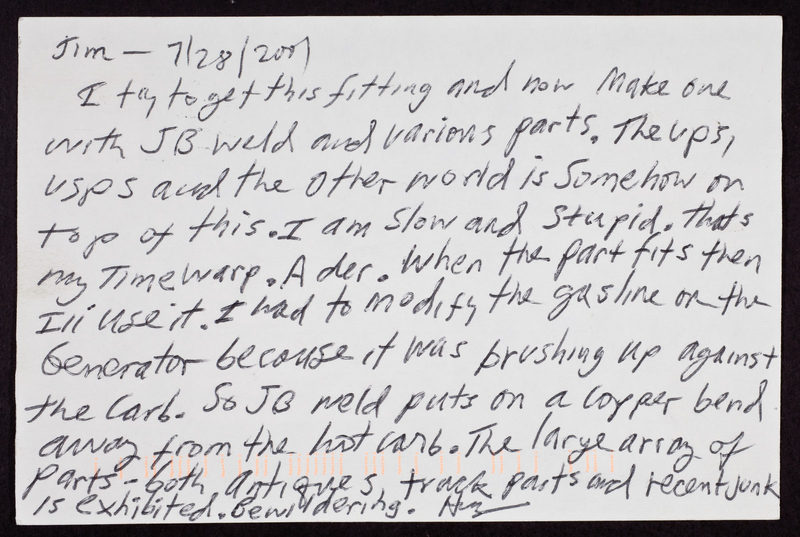 Jim — 7/28/2001
I try to get this fitting and now Make one
with JB weld and various parts. The ups,
usps and the other world is somehow on
top of this. I am slow and stupid. Thats
my Time warp. A der. When the part fits then
Ill use it. I had to modify the gasline on the
Generator because it was brushing up against
the Carb. So JB weld puts on a copper bend
away from the hot carb. The large array of
parts - both antiques, track parts and recent junk
is exhibited. Bewildering.